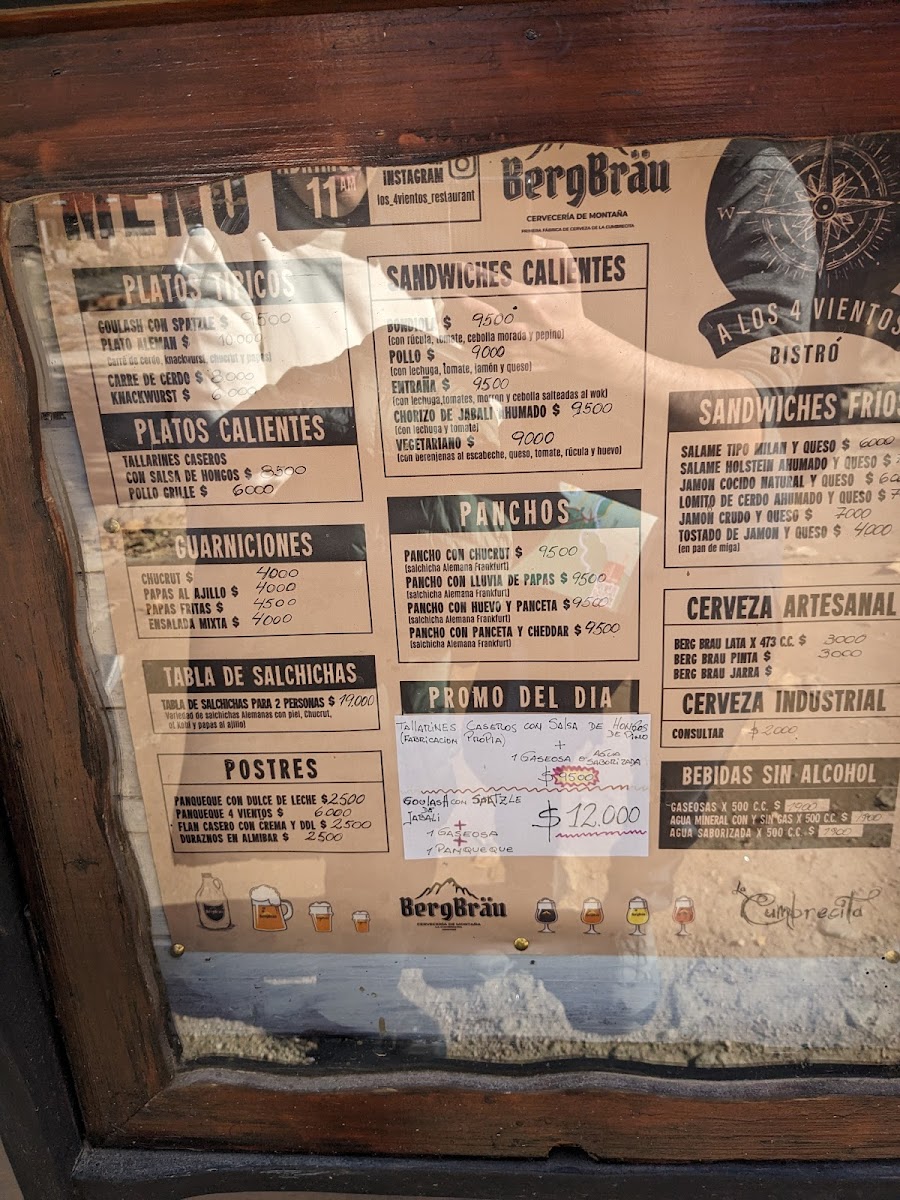 MENU
11 AM
INSTAGRAM
los_4vientos_restaurant
BergBräu
CERVECERÍA DE MONTAÑA
PRIMERA FÁBRICA DE CERVEZA DE LA CUMBRECITA
W
A LOS 4 VIENTOS
BISTRÓ
PLATOS TIPICOS
GOULASH CON SPATZLE $ 9500
PLATO ALEMAN $ 10.000
Carré de cerdo, knackwurst, chucrut y papas)
CARRE DE CERDO $ 8.000
KNACKWURST $ 6.000
PLATOS CALIENTES
TALLARINES CASEROS
CON SALSA DE HONGOS $ 8500
POLLO GRILLE $ 6000
GUARNICIONES
CHUCRUT $ 4000
PAPAS AL AJILLO $ 4000
PAPAS FRITAS $ 4500
ENSALADA MIXTA $ 4000
TABLA DE SALCHICHAS
TABLA DE SALCHICHAS PARA 2 PERSONAS $ 19.000
Variedad de salchichas Alemanas con piel, Chucrut,
y papas al ajillo)
POSTRES
PANQUEQUE CON DULCE DE LECHE $2500
PANQUEQUE 4 VIENTOS $ 6000
FLAN CASERO CON CREMA Y DDL $ 2500
DURAZNOS EN ALMIBAR $ 2500
SANDWICHES CALIENTES
BONDIOLA $ 9500
(con rúcula, tomate, cebolla morada y pepino)
POLLO $ 9000
(con lechuga, tomate, jamón y queso)
ENTRAÑA $ 9500
(con lechuga, tomates, morron y cebolla salteadas al wok)
CHORIZO DE JABALI AHUMADO $ 9500
(con lechuga y tomate)
VEGETARIANO $ 9000
(con berenjenas al escabeche, queso, tomate, rúcula y huevo)
PANCHOS
PANCHO CON CHUCRUT $ 9500
(salchicha Alemana Frankfurt)
PANCHO CON LLUVIA DE PAPAS $ 9500
(salchicha Alemana Frankfurt)
PANCHO CON HUEVO Y PANCETA $ 9500
(salchicha Alemana Frankfurt)
PANCHO CON PANCETA Y CHEDDAR $ 9500
(salchicha Alemana Frankfurt)
PROMO DEL DIA
TALLARINES CASEROS CON SALSA DE HONGOS
DE PINO
(FABRICACION PROPIA)
+
1 GASEOSA O AGUA SABORIZADA
$ 9500
GOULASH CON SPATZLE
DE JABALI
+
1 GASEOSA
+
1 PANQUEQUE
$ 12.000
SANDWICHES FRIOS
SALAME TIPO MILAN Y QUESO $ 6000
SALAME HOLSTEIN AHUMADO Y QUESO $
JAMON COCIDO NATURAL Y QUESO $
LOMITO DE CERDO AHUMADO Y QUESO $
JAMON CRUDO Y QUESO $ 7000
TOSTADO DE JAMON Y QUESO $ 4000
(en pan de miga)
CERVEZA ARTESANAL
BERG BRAU LATA X 473 C.C. $ 3000
BERG BRAU PINTA $ 3000
BERG BRAU JARRA $
CERVEZA INDUSTRIAL
CONSULTAR $ 2000
BEBIDAS SIN ALCOHOL
GASEOSAS X 500 C.C. $ 1900
AGUA MINERAL CON Y SIN GAS X 500 C.C. $
AGUA SABORIZADA X 500 C.C. $ 1900
BergBräu
CERVECERÍA DE MONTAÑA
La Cumbrecita